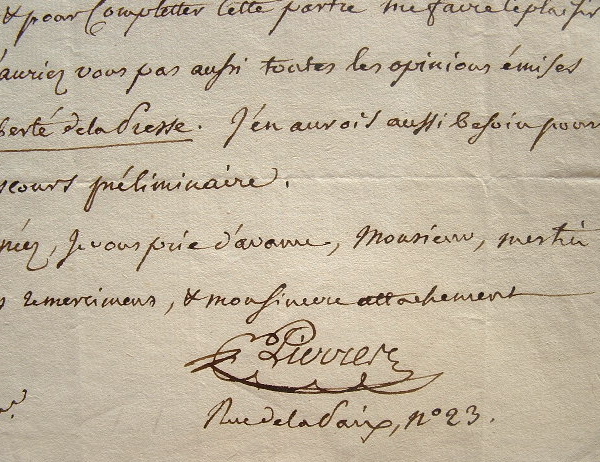 & pour Completter cette partie me faire le plaisir
auriez vous pas aussi toutes les opinions émises
berté de la Presse. J'en aurois aussi besoin pour
scours préliminaire.
Je vous prie d'avance, Monsieur, mes
remercimens, & mon sincere attachement
Pierres
Rue de la Paix, n° 23.